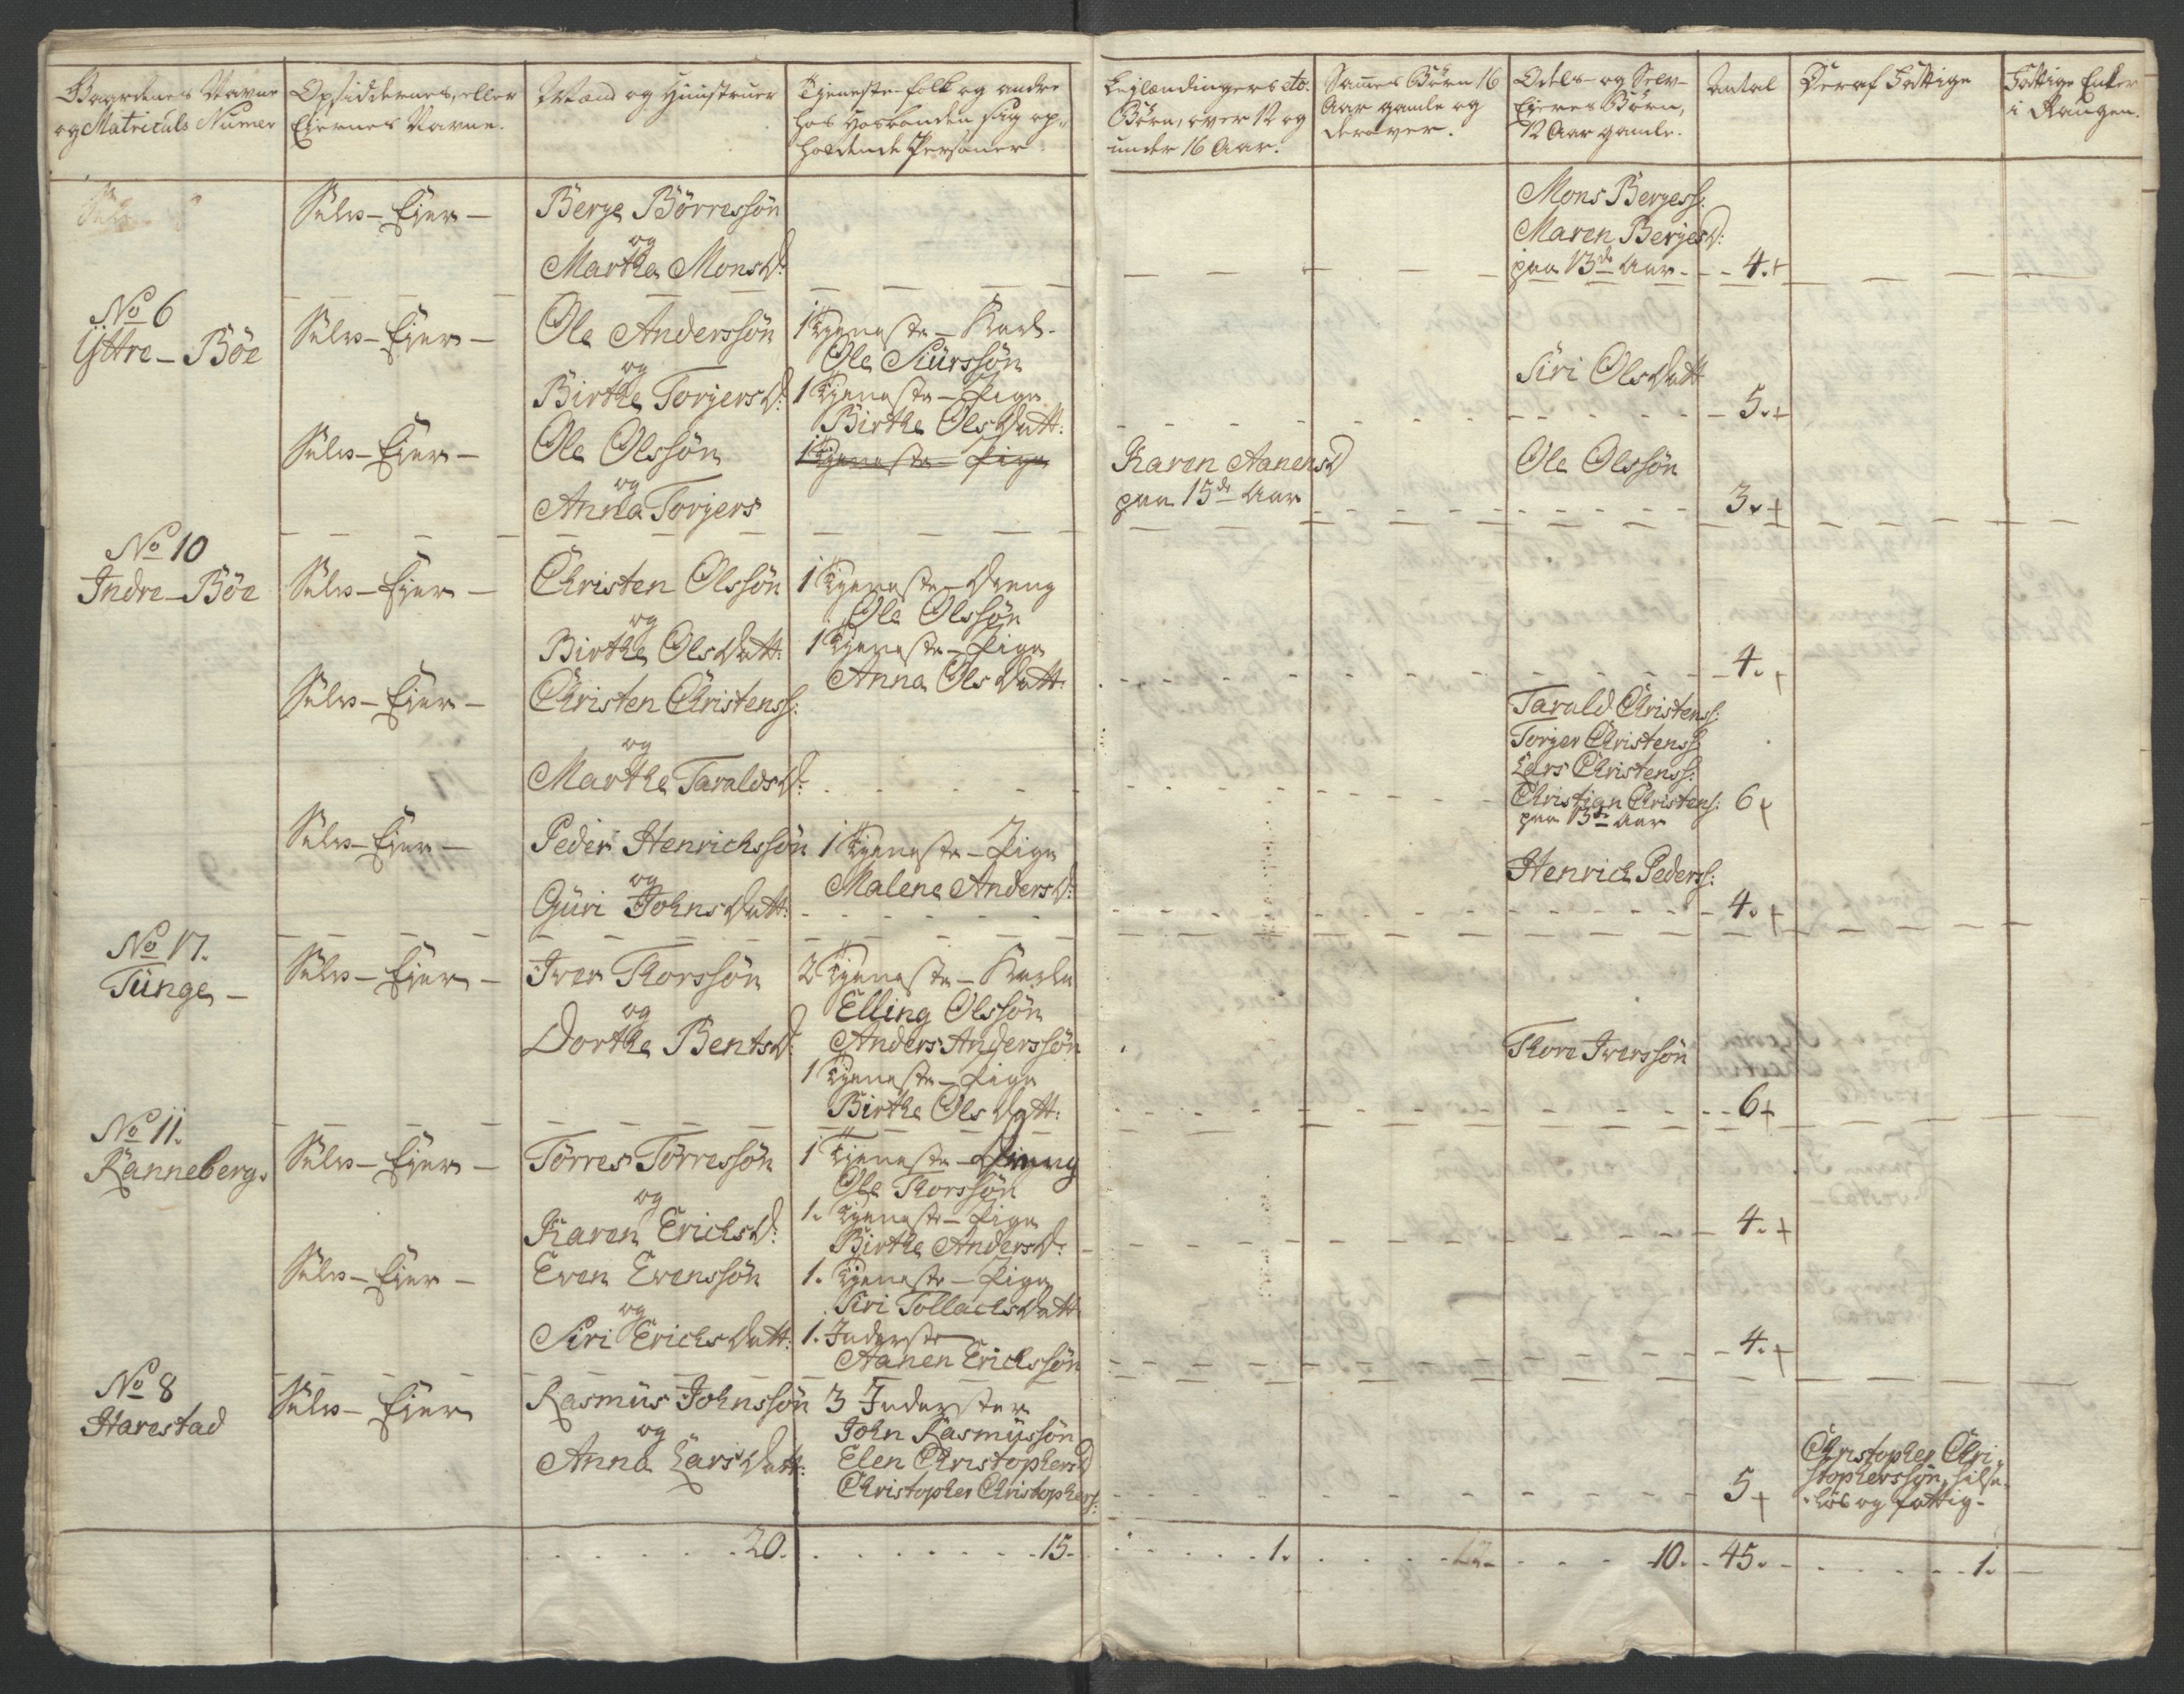 Gaardenes Navne
og Matriculs Numer
Opsiddernes, eller
Eiernes Navne.
Mænd og Huustruer
Tjeneste-folk og andre
hos Hosbonden sig op-
holdende Personer.
Leylændingers etc:
Börn, over 12 og
under 16 Aar.
Sames Börn 16
Aar gamle og
derover.
Odels- og Selv-
Ejeres Börn,
12 Aar gamle.
Antal
Deraf Fattige
Fattige Enker
i Raugen.
Selv-Ejer-
Berge Börressön
og
Marthe MonsD:
Mons Bergess:
Maren BergesD:
paa 13de Aar - 4. +
No 6
Yttre-Böe
Selv-Ejer-
Ole Anderssön
og
Birthe TorgersD:
1 Tjeneste-Karl-
Ole Siurssön
1 Tjeneste-Pige
Birthe OlsDatt:
Siri OlsDatt
5. +
Selv-Ejer-
Ole Olssön
og
Anna Torgers
1 Tjeneste-Pige
Karen AanensD
paa 15de Aar
Ole Olssön
3. +
No 10
Indre-Böe
Selv-Ejer-
Christen Olssön
og
Birthe OlsDatt:
1 Tjeneste-Dreng
Ole Olssön
1 Tjeneste-Pige
Anna OlsDatt:
4. +
Selv-Ejer-
Christen Christenss:
og
Marthe TaraldsD:
Tarald Christenss:
Torger Christenss
Lars Christenss:
Christian Christens: 6 +
paa 13de Aar
Selv-Ejer-
Peder Henrichssön
og
Guri JohnsDatt:
1 Tjeneste-Pige
Malene AndersD:
Henrich Peders:
4. +
No 17.
Tunge-
Selv-Ejer-
Iver Thorssön
og
Dorthe BentsD:
2 Tjeneste-Karle
Elling Olssön
Anders Anderssön
1 Tjeneste-Pige
Birthe OlsDatt:
Thore Iverssön
6 +
No 11.
Ranneberg.
Selv-Ejer-
Törres Törressön
og
Karen ErichsD:
1 Tjeneste-Dreng
Ole Thorssön
1. Tjeneste-Pige
Birthe AndersD:
4. +
Selv-Ejer-
Even Evenssön
og
Siri ErichsDatt:
1. Tjeneste-Pige
Siri TollachsDatt
1. Inderste
Aanen Erichssön
4. +
No 8
Harestad
Selv-Ejer
Rasmus Johnssön
og
Anna LarsDatt:
3 Inderster
John Rasmussön
Elen ChristophersD
Christopher Christophers:
5 +
Christopher Chri-
stopherssön, helse-
lös og fattig-
20.
15.
1.
10.
45.
1.